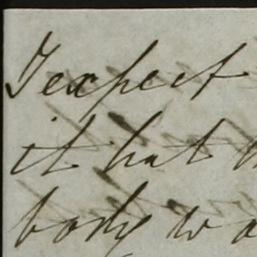 I expect
it but
body w